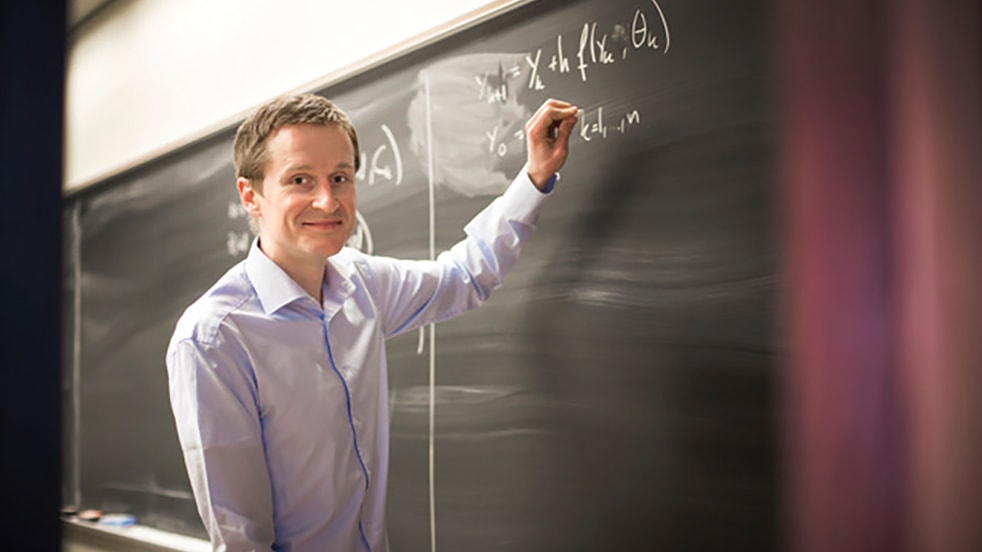 y_{k+1} = y_k + h f(y_k, θ_k)
y_0 = k=1,...,n